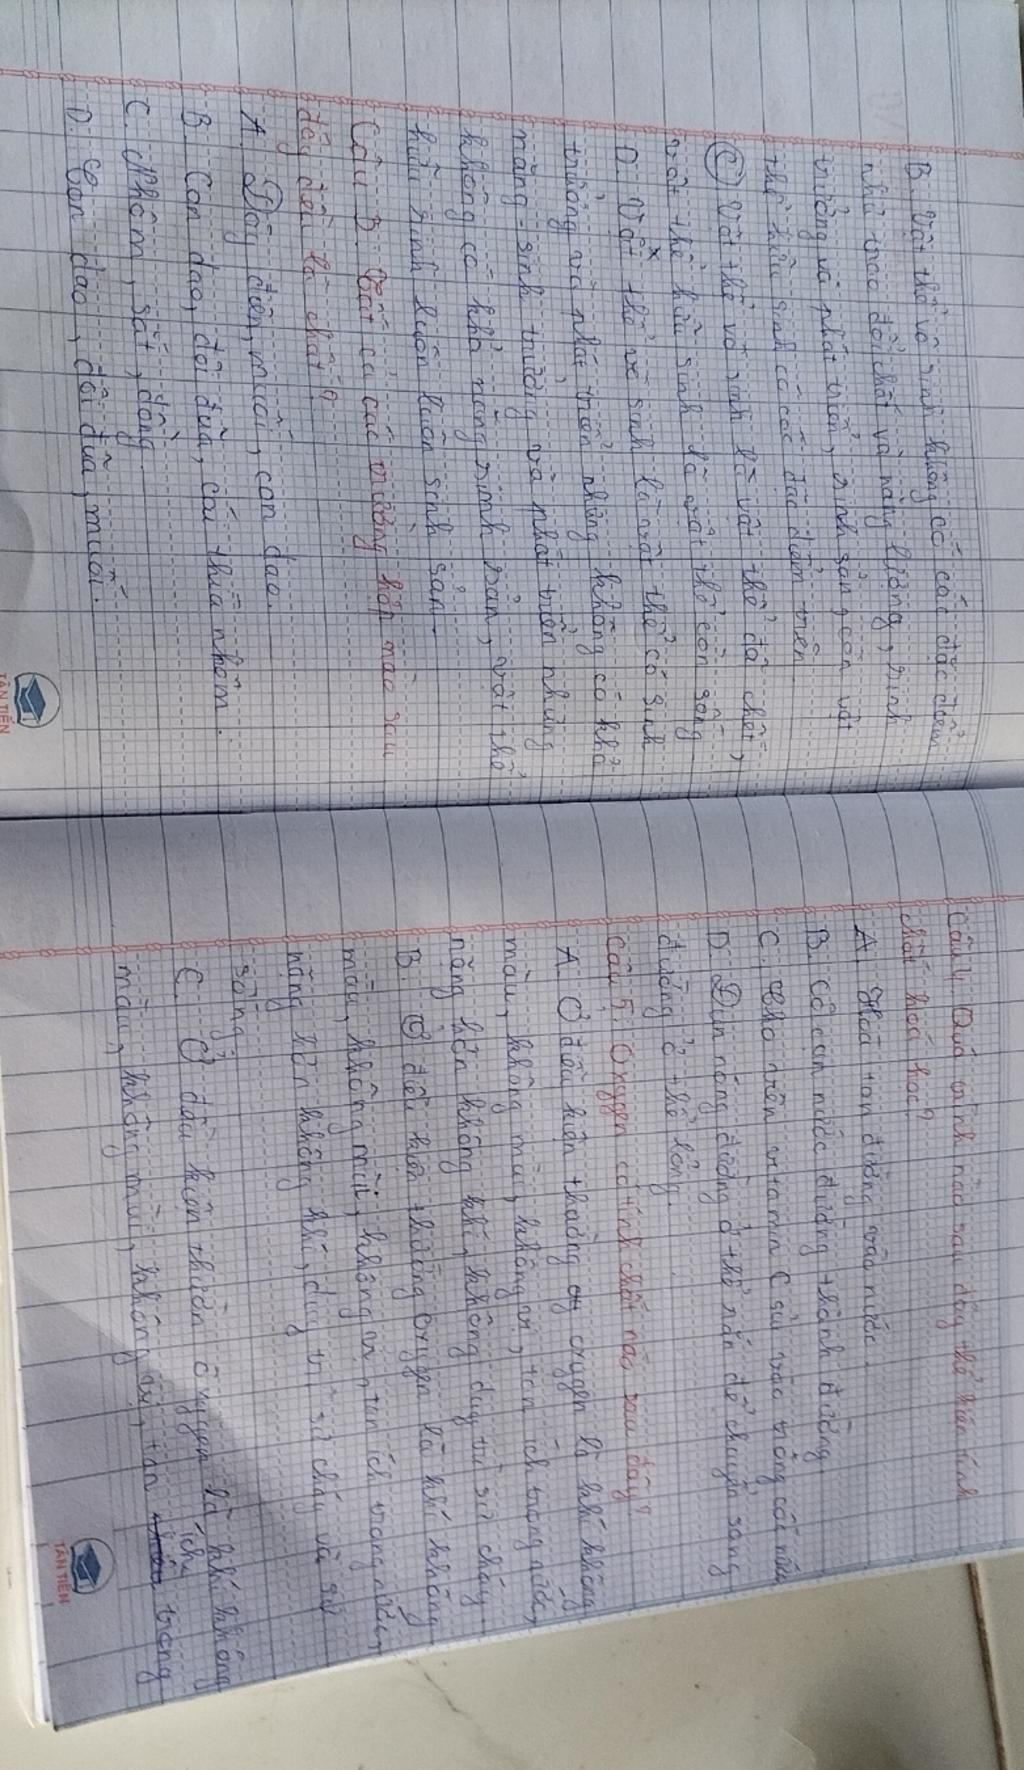 B. Vật thể vô sinh không có các đặc điểm
như trao đổi chất và năng lượng, sinh
trưởng và phát triển, sinh sản, còn vật
thể hữu sinh có các đặc điểm trên
C. Vật thể vô sinh là vật thể đã chết,
vật thể hữu sinh là vật thể còn sống
D. Vật thể vô sinh là vật thể có sinh
trưởng và phát triển nhưng không có khả
năng sinh trưởng và phát triển nhưng
không có khả năng sinh sản, vật thể
hữu sinh luôn luôn sinh sản.
Câu 3. Tất cả các trường hợp nào sau
đây đều là chất?
A. Dây điện, muối, con dao.
B. Con dao, đôi đũa, cái thìa nhôm.
C. Nhôm, sắt, đồng
D. Con dao, đôi đũa, muối.
TÂN TIẾN
Câu 4. Quá trình nào sau đây thể hiện tính
chất hoá học?
A. Hoà tan đường vào nước.
B. Cô cạn nước đường thành đường
C. Cho viên vitamin C sủi vào trong cốc nước
D. Đun nóng đường ở thể rắn để chuyển sang
đường ở thể lỏng.
Câu 5. Oxygen có tính chất nào sau đây?
A. Ở điều kiện thường oxygen là khí không
màu, không mùi, không vị, tan ít trong nước,
nặng hơn không khí, không duy trì sự cháy
B. Ở điều kiện thường oxygen là khí không
màu, không mùi, không vị, tan ít trong nước,
nặng hơn không khí, duy trì sự cháy và sự
sống.
C. Ở điều kiện thường oxygen là khí không
màu, không mùi, không vị, tan ít trong
TÂN TIẾN